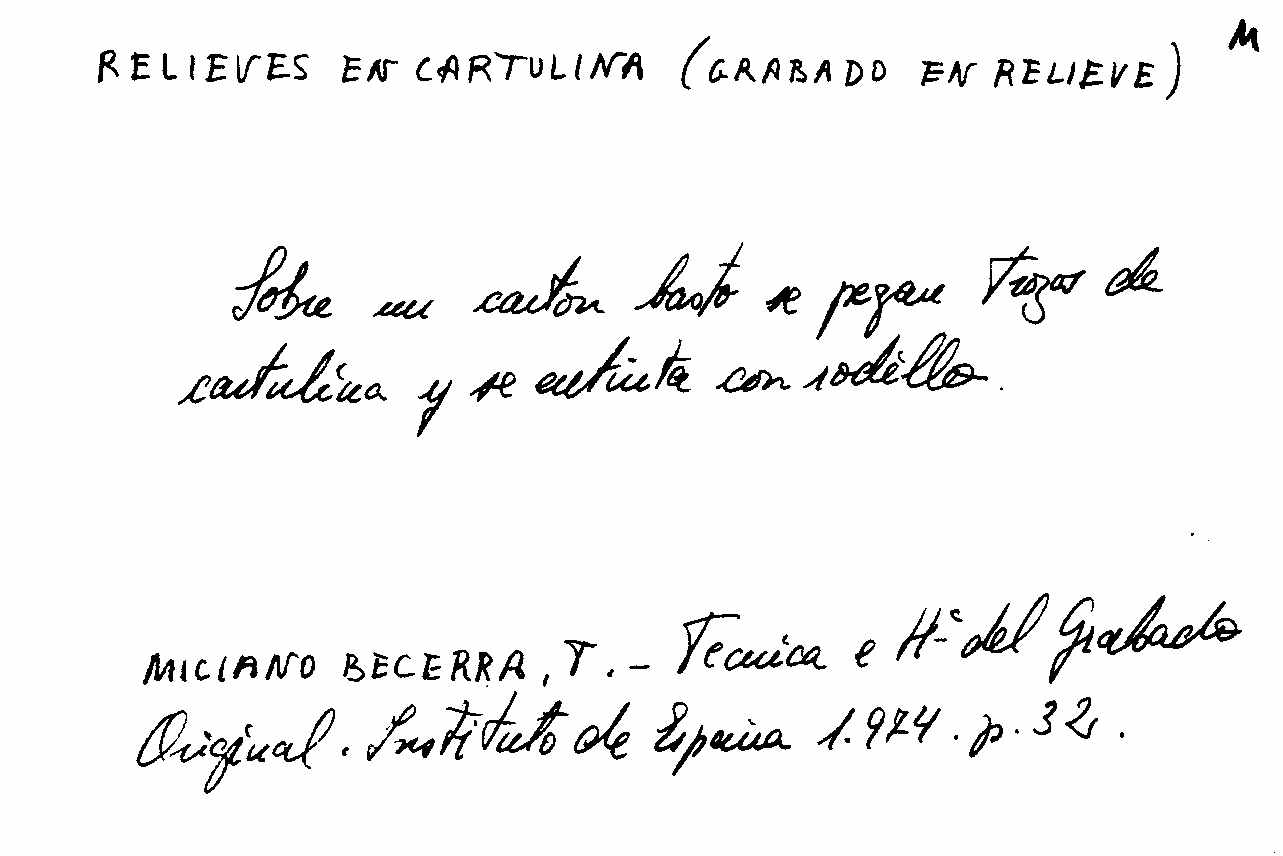 M
RELIEVES EN CARTULINA (GRABADO EN RELIEVE)
Sobre un carton basto se pegan trozos de
cartulina y se entinta con rodillo.
MICIANO BECERRA, T. - Tecnica e Hª del Grabado
Original. Instituto de España 1.974. p. 32.